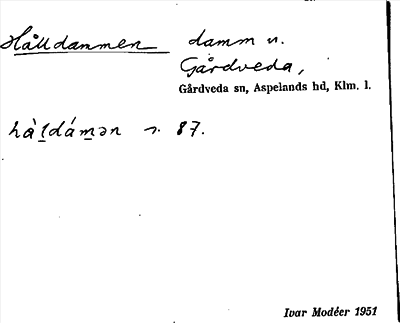 Hålldammen damm n.
Gårdveda,
Gårdveda sn, Aspelands hd, Klm. l.
hàl̲dám̲ən 87.
Ivar Modéer 1951